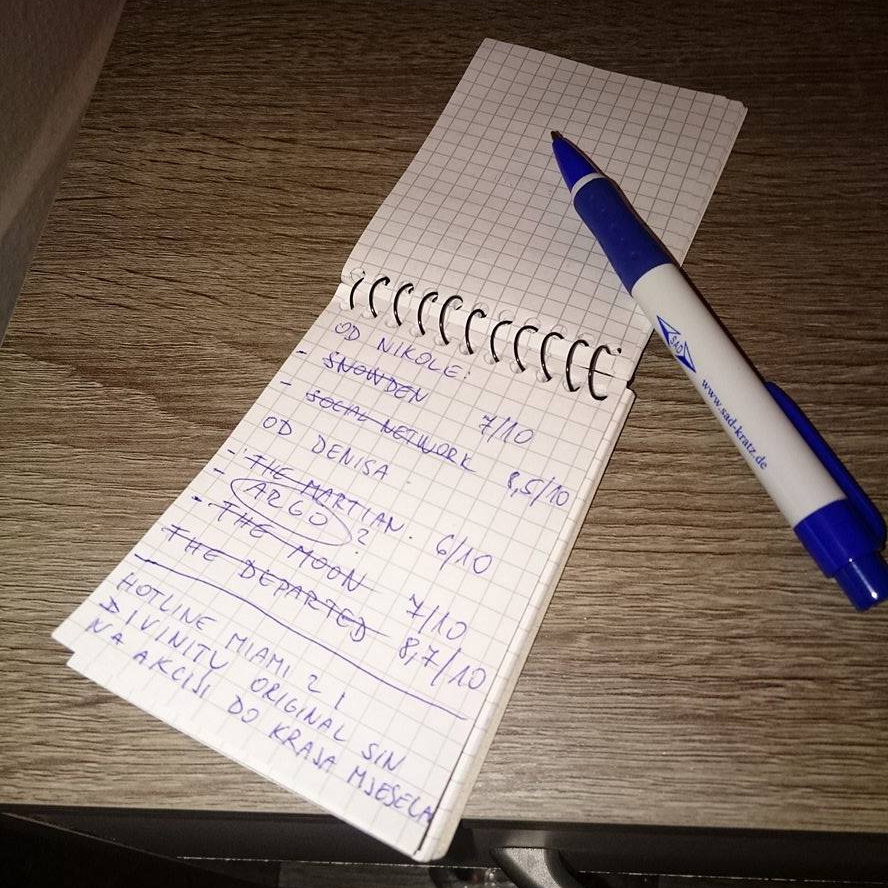 OD NIKOLE:
- SNOWDEN 7/10
- SOCIAL NETWORK 8,5/10
OD DENISA
- THE MARTIAN. 6/10
- ARGO ?
- THE MOON 7/10
THE DEPARTED 8,7/10
HOTLINE MIAMI 2 I
DIVINITY ORIGINAL SIN
NA AKCIJI DO KRAJA MJESECA
SAD
www.sad-kratz.de